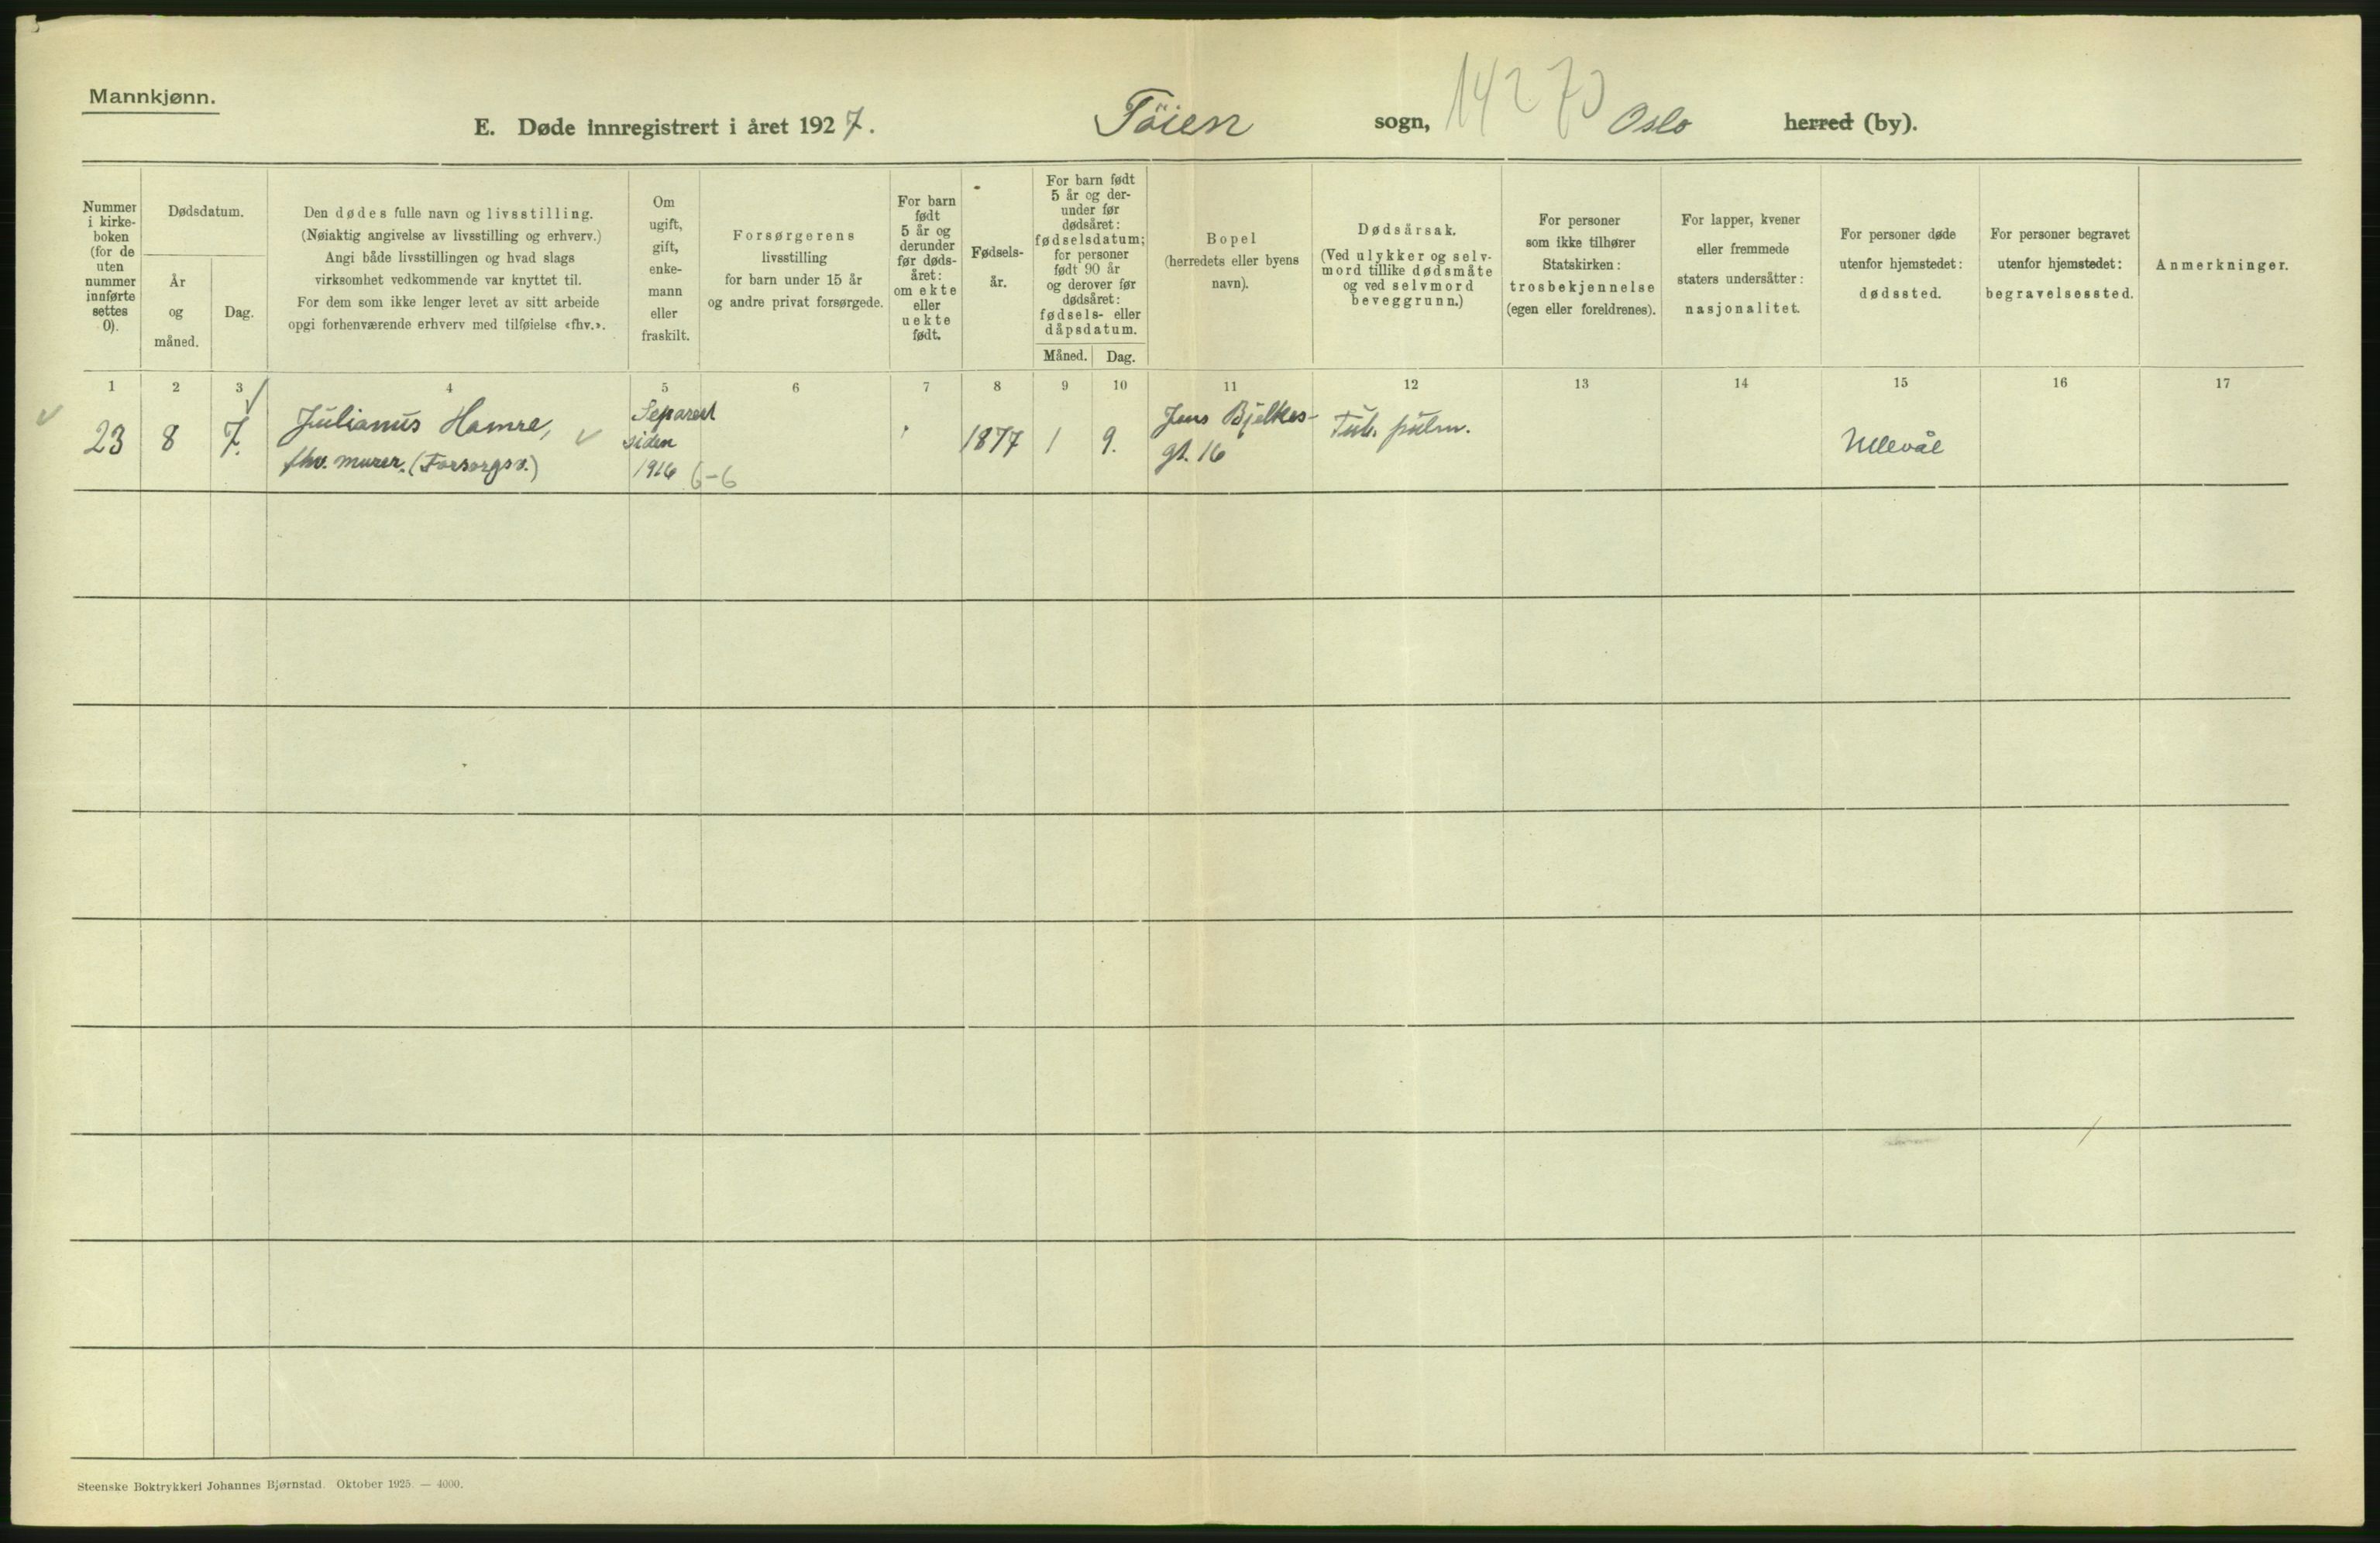 Mannkjønn.
E. Døde innregistrert i året 1927. Töien sogn, 14270 Oslo herred (by).
Nummer
i kirke-
boken
(for de
uten
nummer
innførte
settes
0).
Dødsdatum.
År
og
måned.
Dag.
Den dødes fulle navn og livsstilling.
(Nøiaktig angivelse av livsstilling og erhverv.)
Angi både livsstillingen og hvad slags
virksomhet vedkommende var knyttet til.
For dem som ikke lenger levet av sitt arbeide
opgi forhenværende erhverv med tilføielse «fhv.».
Om
ugift,
gift,
enke-
mann
eller
fraskilt.
Forsørgerens
livsstilling
for barn under 15 år
og andre privat forsørgede.
For barn
født
5 år og
derunder
før døds-
året:
om ekte
eller
uekte
født.
Fødsels-
år.
For barn født
5 år og der-
under før
dødsåret:
fødselsdatum;
for personer
født 90 år
og derover før
dødsåret:
fødsels- eller
dåpsdatum.
Måned. Dag.
Bopel
(herredets eller byens
navn).
Dødsårsak.
(Ved ulykker og selv-
mord tillike dødsmåte
og ved selvmord
beveggrunn.)
For personer
som ikke tilhører
Statskirken:
trosbekjennelse
(egen eller foreldrenes).
For lapper, kvener
eller fremmede
staters undersåtter:
nasjonalitet.
For personer døde
utenfor hjemstedet:
dødssted.
For personer begravet
utenfor hjemstedet:
begravelsessted.
Anmerkninger.
1 2 3 4 5 6 7 8 9 10 11 12 13 14 15 16 17
23 8 7.
Julianus Hamre,
fhv. murer. (Forsorgsv.)
Separert
siden
1916 6-6
1877 1 9.
Jens Bjelkes-
gt. 16
Tub. pulm.
Ullevål
Steenske Boktrykkeri Johannes Bjørnstad. Oktober 1925. — 4000.